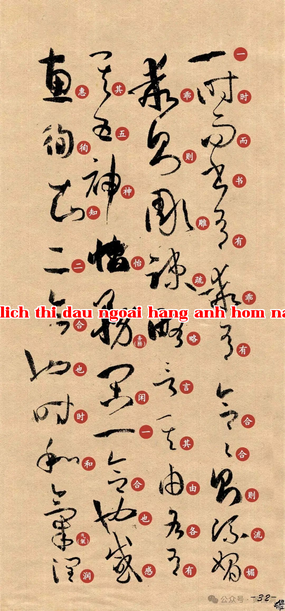 一时而书有乖有合合则流媚
乖则雕疏略言其由各有
其五神怡务闲一合也感
惠徇知二合也时和气润
lich thi dau ngoai hang anh hom na
公众号
-32-